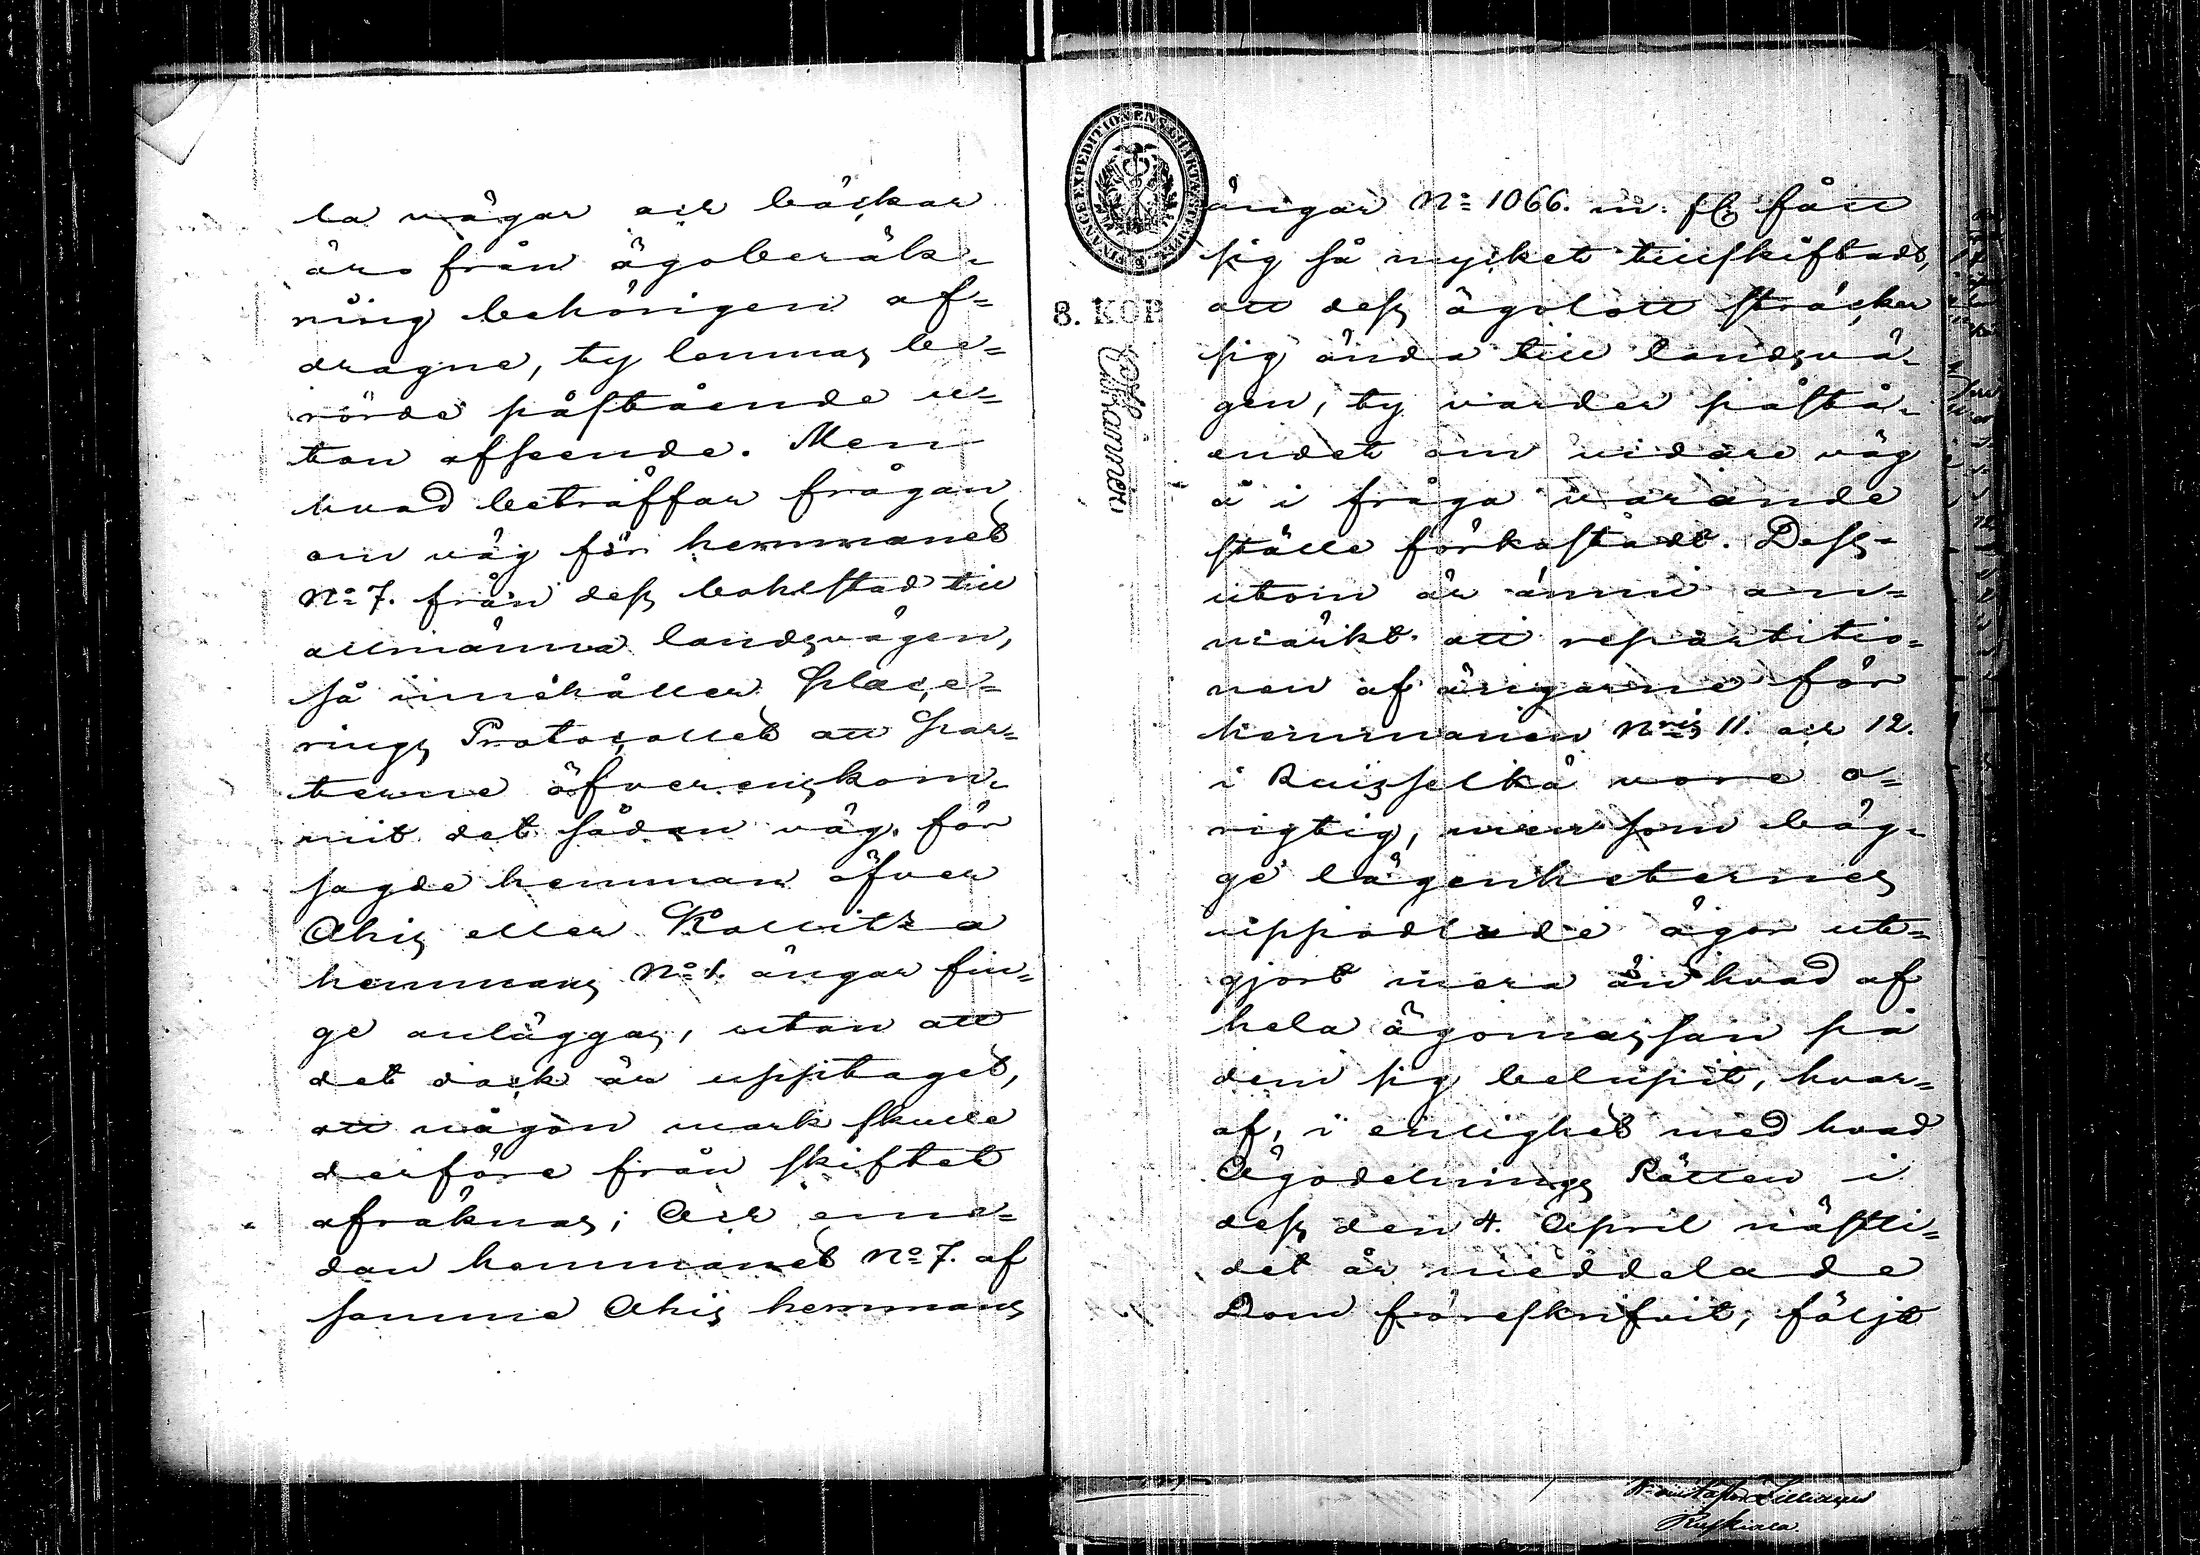 la vägar och bäckar
äro från ägoberäk-
ning behörigen af=
dragne, ty lemnas be=
rörde påstående u=
tan afseende. Men
hvad beträffar frågan
om väg för hemmanet
No 7. från dess bohlstad till
allmänna landsvägen,
så innehåller Place=
rings Protocollet att Par=
terne öfverenskom-
mit det sådan väg för
sagde hemman öfver
Ahis eller Kollitza
hemmans No 1. ängar fin=
ge anläggas, utan att
det dock är upptaget,
att någon mark skulle
derföre från skiftet
afräknas; Och eme=
dan hemmanet No 7. af
samma Ahis hemmans
FINANCE EXPEDITIONENS CHARTÆ
8. KOP
ängar No 1066. m. fl. fått
sig så mycket tillskiftadt,
att dess ägolott sträcker
sig ända till landsvä-
gen, ty varder påstå-
endet om vidare väg
å i fråga varande
ställe förkastadt. Dess-
utom är ännu an=
märkt att repartitio=
nen af ängarne för
hemmanen Nris 11. och 12.
i Ruisselkä vore o=
rigtig, men som bäg-
ge lägenheternes
uppodlade ägor ut=
gjort mera än hvad af
hela ägomassan på
dem sig belupit, hvar=
af, i enlighet med hvad
Ägodelnings Rätten i
dess den 4. April nästli=
det år meddelade
Dom föreskrifvit, följt
Ruskiala.